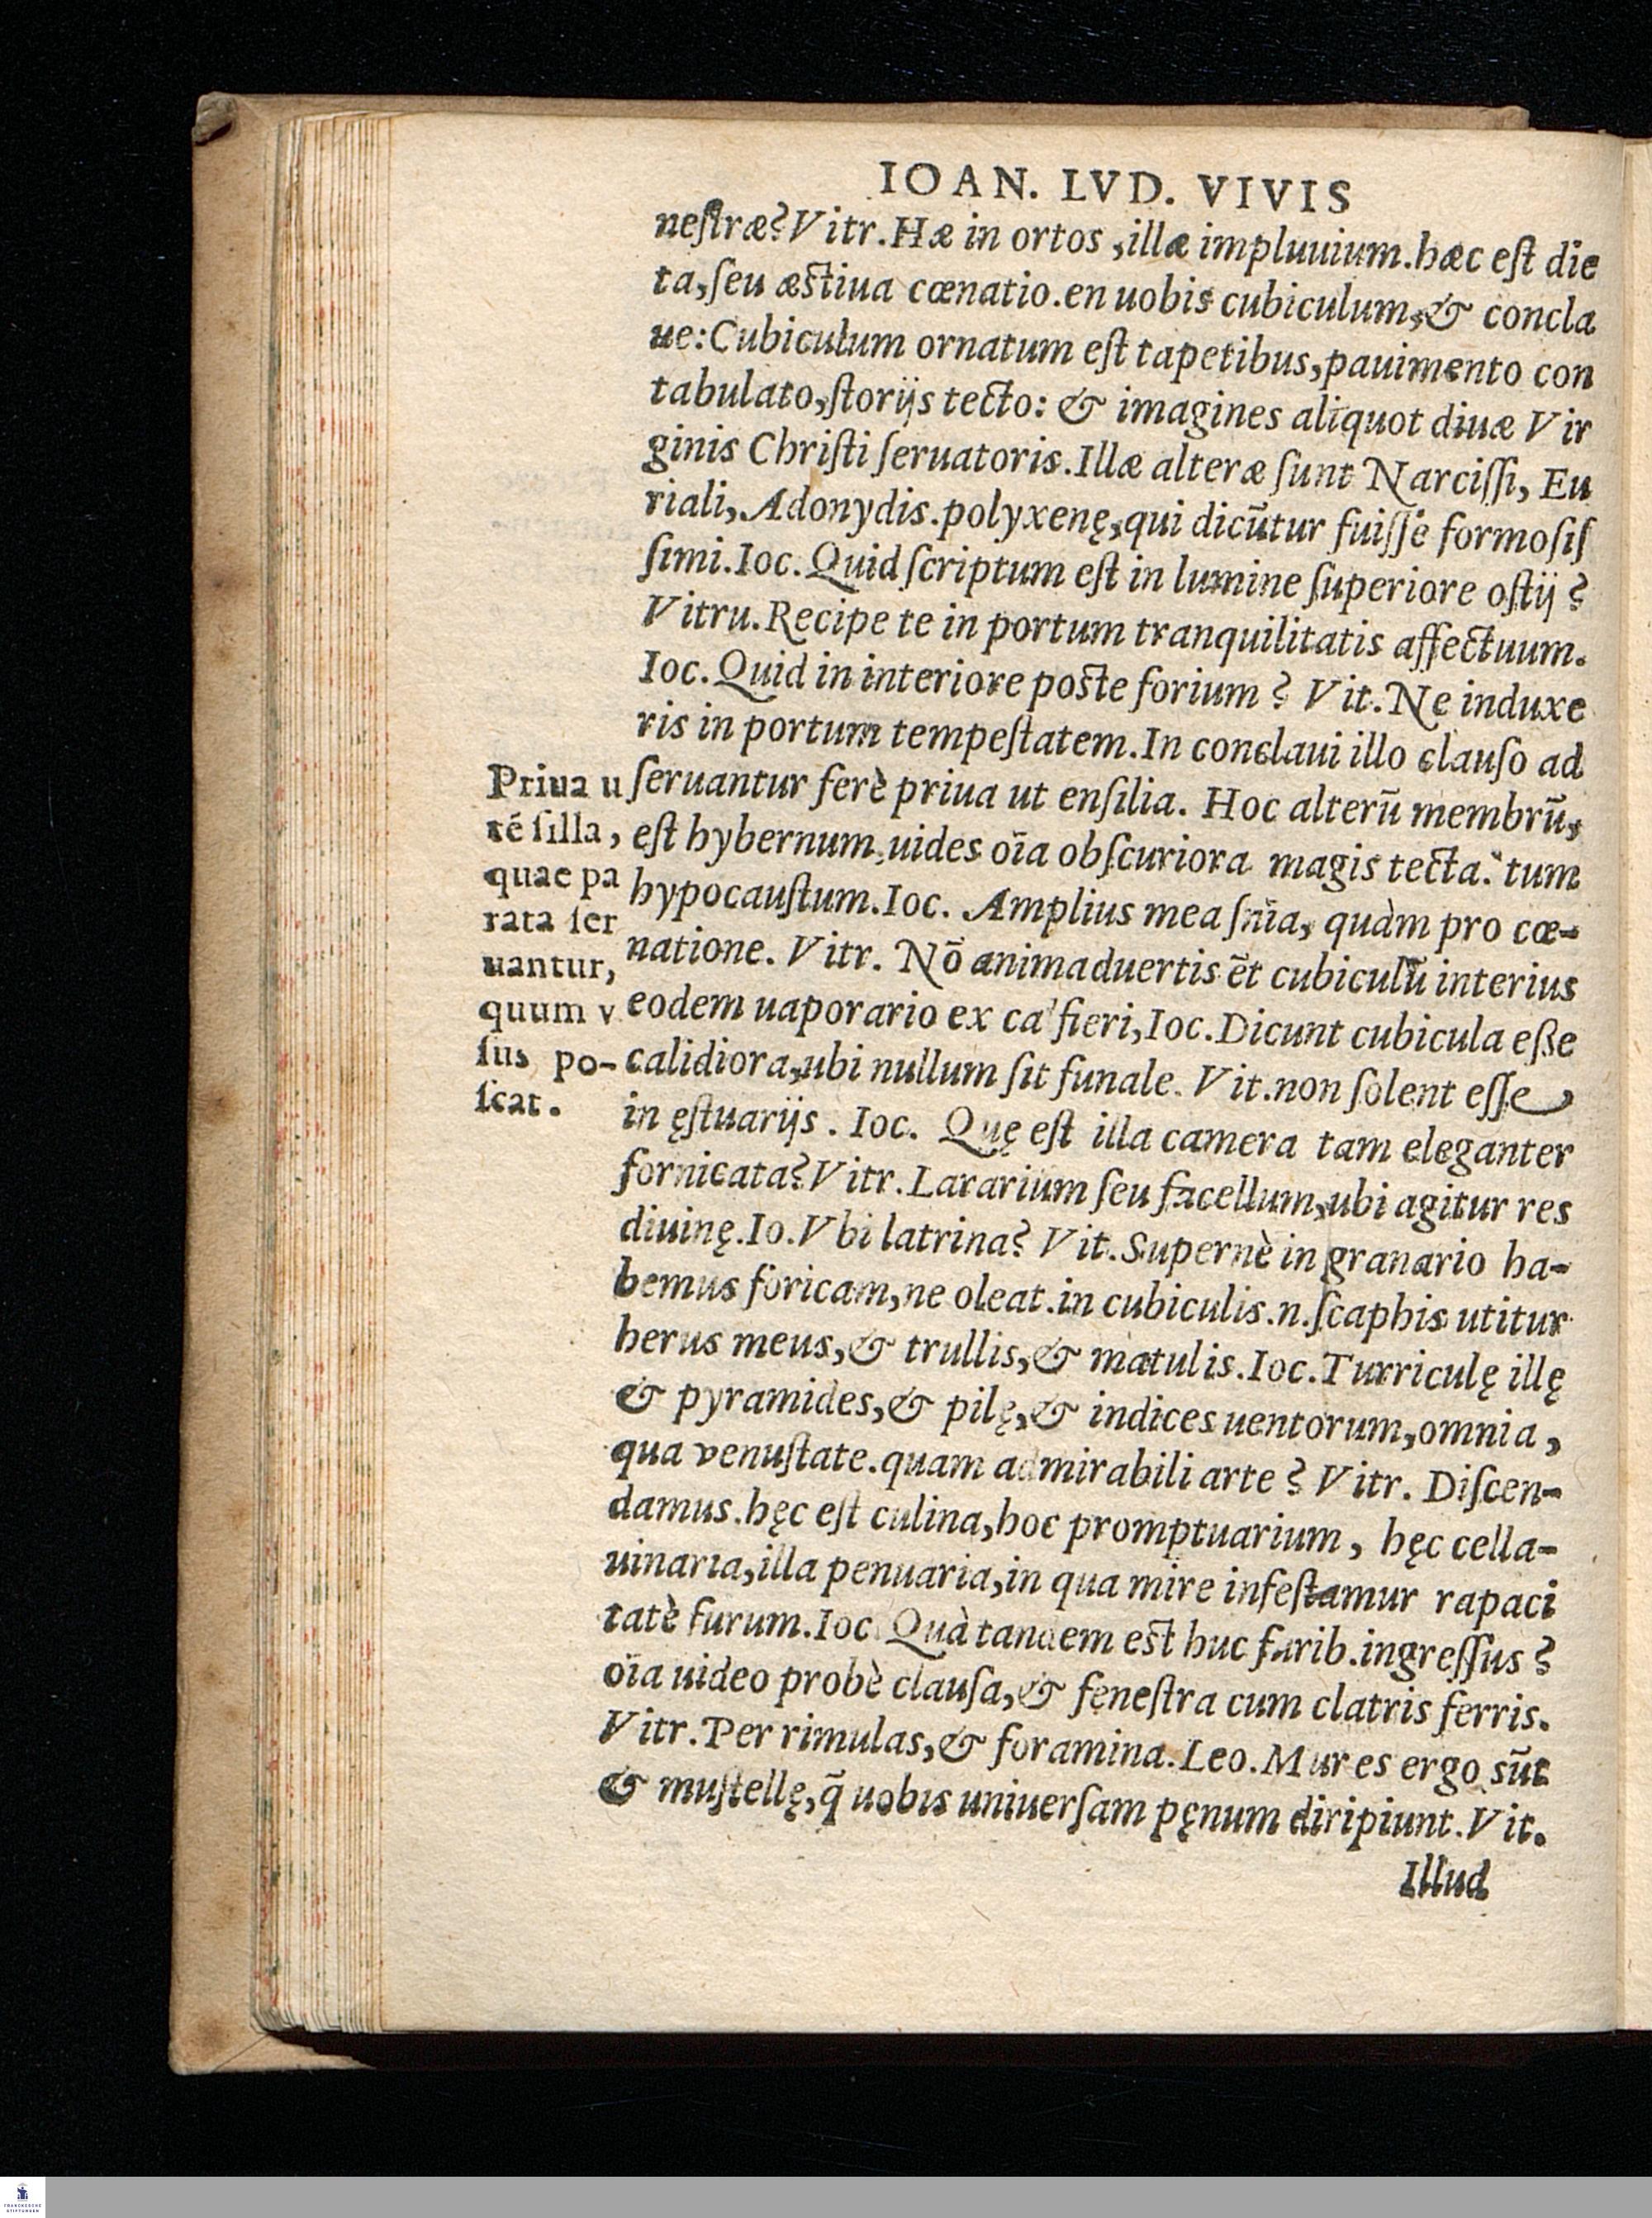 IOAN. LVD. VIVIS
neſtræ? Vitr. Hæ in ortos, illæ impluuium. hæc eſt die
ta, ſeu æſtiua cœnatio. en uobis cubiculum, & concla
ue: Cubiculum ornatum eſt tapetibus, pauimento con
tabulato, ſtorijs tecto: & imagines aliquot diuæ Vir
ginis Chriſti ſeruatoris. Illæ alteræ ſunt Narciſſi, Eu
riali, Adonydis. polyxenę, qui dicūtur fuiſſe formoſiſ
ſimi. Ioc. Quid ſcriptum eſt in lumine ſuperiore oſtij?
Vitru. Recipe te in portum tranquilitatis affectuum.
Ioc. Quid in interiore poſte forium? Vit. Ne induxe
ris in portum tempeſtatem. In conclaui illo clauſo ad
ſeruantur ferè priua ut enſilia. Hoc alterū membrū,
eſt hybernum, uides oīa obſcuriora magis tecta. tum
hypocauſtum. Ioc. Amplius mea ſnīa, quàm pro cœ-
natione. Vitr. Nō animaduertis ēt cubiculū interius
eodem uaporario ex ca fieri, Ioc. Dicunt cubicula eſſe
calidiora, ubi nullum ſit funale. Vit. non ſolent eſſe
in ęſtuarijs. Ioc. Quę eſt illa camera tam eleganter
fornicata? Vitr. Lararium ſeu ſacellum, ubi agitur res
diuinę. Io. Vbi latrina? Vit. Supernè in granario ha-
bemus foricam, ne oleat. in cubiculis .n. ſcaphis utitur
herus meus, & trullis, & matulis. Ioc. Turriculę illę
& pyramides, & pilę, & indices uentorum, omnia,
qua venuſtate. quam admirabili arte? Vitr. Diſcen-
damus. hęc eſt culina, hoc promptuarium, hęc cella-
uinaria, illa penuaria, in qua mire infeſtamur rapaci
tatè furum. Ioc. Quà tandem eſt huc furib. ingreſſus?
oīa uideo probè clauſa, & feneſtra cum clatris ferris.
Vitr. Per rimulas, & foramina. Leo. Mures ergo sūt
& muſtellę, q̄ uobis uniuerſam pęnum diripiunt. Vit.
Illud
Priua u
té ſilla,
quae pa
rata ſer
uantur,
quum v
ſus po-
ſcat.
FRANCKESCHE
STIFTUNGEN